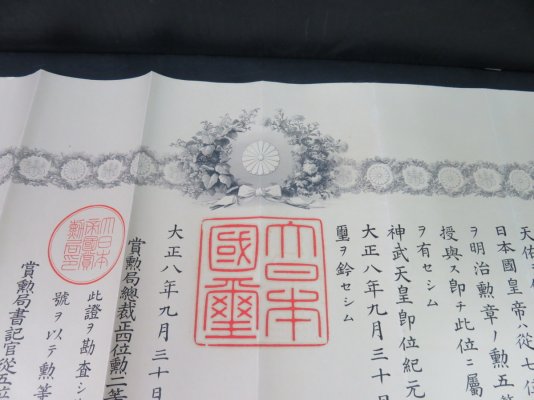 天佑
日本國皇帝ハ從七位
ヲ明治勲章ノ勲五等
授與ス卽チ此位ニ屬
ヲ有セシム
神武天皇卽位紀元
大正八年九月三十日
璽ヲ鈐セシム
大日本
國璽
大正八年九月三十日
賞勲局總裁正四位勲二等
大日本
帝國賞
勲局印
此證ヲ勘査シ
號ヲ以テ勲等
賞勲局書記官從五位